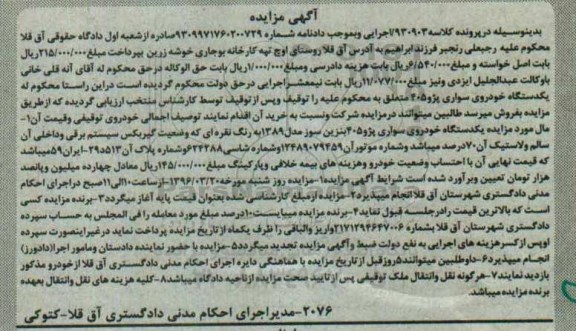 آگهی مزایده
بدینوسیله درپرونده کلاسه۹۳۰۹۰۳/اجرایی وبموجب دادنامه شماره ۹۳۰۹۹۷۱۷۶۰۲۰۰۷۳۹صادره ازشعبه اول دادگاه حقوقی آق قلا
محکوم علیه رجبعلی رنجبر فرزند ابراهیم به آدرس آق قلا روستای اوچ تپه کارخانه بوجاری خوشه زرین بپرداخت مبلغ۲۱۵/۰۰۰/۰۰۰ریال
بابت اصل خواسته و مبلغ۶/۵۴۰/۰۰۰ریال بابت هزینه دادرسی ومبلغ۱/۰۰۰/۰۰۰ریال بابت حق الوکاله درحق محکوم له آقای آنه قلی خانی
باوکالت عبدالجلیل ایزدی ونیز مبلغ۱۱/۰۷۷/۰۰۰ریال بابت نیمعشراجرایی درحق دولت محکوم گردیده است دراین راستا محکوم له
یکدستگاه خودروی سواری پژو۴۰۵ متعلق به محکوم علیه را توقیف وپس ازتوقیف توسط کارشناس منتخب ارزیابی گردیده که ازطریق
مزایده بفروش میرسد طالبین میتوانند درمزایده شرکت ونسبت به خرید آن اقدام نمایند توصیف اجمالی خودروی توقیفی وقیمت آن۱-
مال مورد مزایده یکدستگاه خودروی سواری پژو۴۰۵بنزین سوز مدل۱۳۸۹به رنگ نقره ای که وضعیت گیربکس سیستم برقی وداخلی آن
سالم ولاستیک آن۷۰درصد میباشد وشماره موتورآن۱۲۴۸۹۰۷۹۴۵۹وشماره شاسی۶۲۴۲۸۸وشماره پلاک آن ۵۱۳د۲۹-ایران۵۹میباشد
که قیمت نهایی آن با احتساب وضعیت خودرو وهزینه های بیمه خلافی وپارکینگ مبلغ۱۴۵/۰۰۰/۰۰۰ریال معادل چهارده میلیون وپانصد
هزار تومان تعیین وبرآورد شده است شرایط آگهی مزایده۱-مزایده روز شنبه مورخه ازساعت۱۰الی۱۱صبح دراجرای احکام
مدنی دادگستری شهرستان آق قلاانجام میپذیرد۲-مزایده ازمبلغ کارشناسی شده بعنوان قیمت پایه آغاز میگردد۳-برنده مزایده کسی
است که بالاترین قیمت رادرجلسه قبول نماید۴-برنده مزایده میبایست۱۰درصد مبلغ مورد معامله را فی المجلس به حساب سپرده
دادگستری شهرستان آق قلا بشماره ۲۱۷۱۲۹۴۶۴۷۰۰۶واریز والباقی را ظرف یکماه ازتاریخ مزایده پرداخت نماید درغیراینصورت سپرده
اوپس ازکسرهزینه های اجرایی به نفع دولت ضبط وآگهی مزایده تجدید میگردد۵-مزایده با حضور نماینده دادستان ومامور اجرا(دادورز)
انجام میپذیرد۶-داوطلبین میتوانند۵روزقبل ازتاریخ مزایده با هماهنگی دایره اجرای احکام مدنی دادگستری آق قلا ازخودرو مذکور
بازدید نمایند۷-هرگونه نقل وانتقال ملک توقیفی پس ازتایید صحت مزایده ازناحیه دادگاه میباشد۸-کلیه هزینه های نقل وانتقال بعهده
برنده مزایده میباشد.
۲۰۷۶-مدیراجرای احکام مدنی دادگستری آق قلا-کتوکی